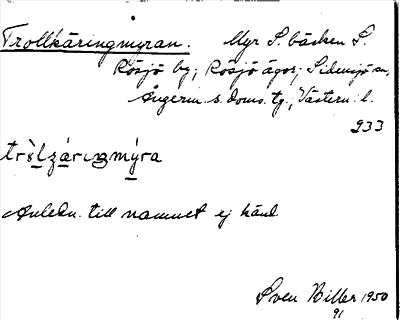 Trollkäringmyran. Myr S. bäcken S.
Rösjö by; Rösjö ägor; Sidensjö sn,
Ångerm. s. doms. tg., Västern. l.
933
trʹo̱lzáriŋmýra
Anledn. till namnet ej känd.
Sven Biller 1950
91